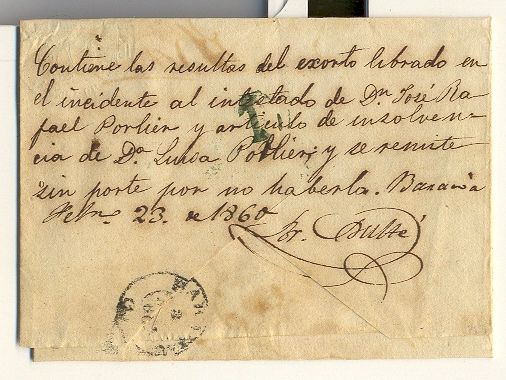 Contiene las resultas del exorto librado en
el incidente al intestado de Dn. José Ra
fael Porlier y artículo de insolven-
cia de Da. Luisa Porlier; y se remite
sin porte por no haberla. Baracoa
Febro. 23. de 1860
Br. Dulté
BAR